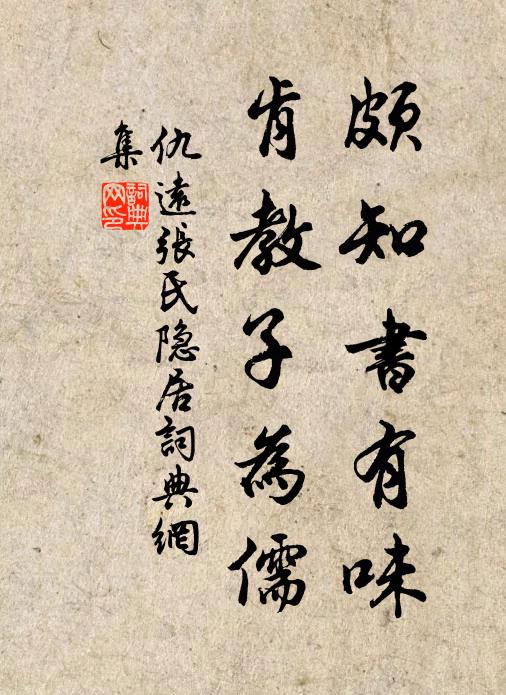 頗知書有味
肯教子為儒
仇遠張氏隐居詞典網
集
詞典
网印